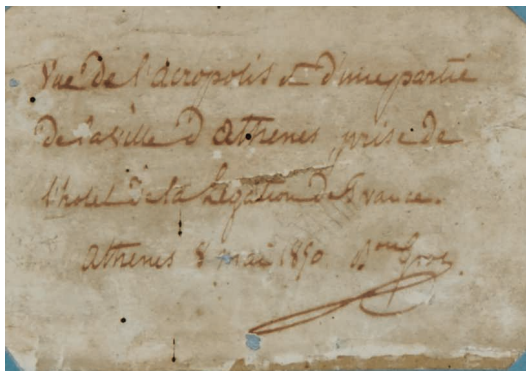 Vue de l'acropolis et d'une partie
de la ville d'athenes, prise de
l'hotel de la Légation de France.
athenes 8 mai 1850 Bon Gros